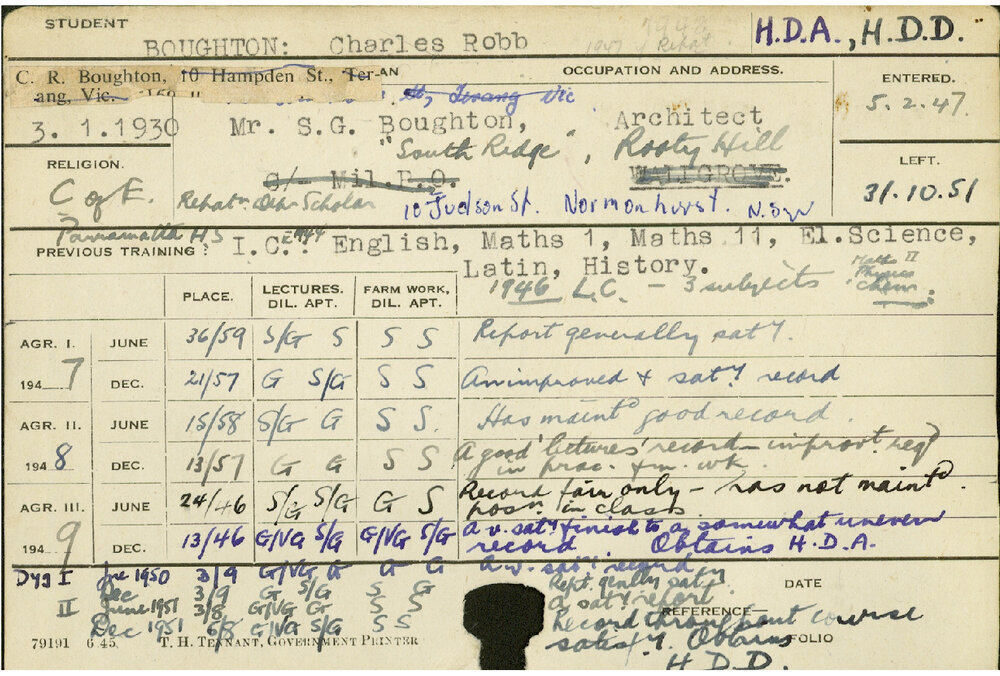 STUDENT
BOUGHTON: Charles Robb
H.D.A., H.D.D.
C. R. Boughton, 10 Hampden St., Ter-
ang, Vic.
AN.
OCCUPATION AND ADDRESS.
ENTERED.
5.2.47.
St, Terang Vic
3.1.1930
Mr. S.G. Boughton,
Architect
"South Ridge", Rooty Hill
RELIGION.
C of E.
C/- Mil.P.O.
WALLGROVE.
LEFT.
31.10.51
Scholar
10 Judson St. Normanhurst. N.S.W
Parramatta HS
PREVIOUS TRAINING?
I.C.: 1944 English, Maths 1, Maths 11, El.Science,
Latin, History.
1946 L.C. - 3 subjects
Maths II
Physics
Chem.
PLACE.
LECTURES.
DIL. APT.
FARM WORK,
DIL. APT.
AGR. I. JUNE 36/59 S/G S S S Report generally sat'y.
1947 DEC. 21/57 G S/G S S An improved & sat'y record
AGR. II. JUNE 15/58 S/G G S S. Has maintd good record.
1948 DEC. 13/57 G G S S A good 'lectures' record - improvt reqd
in prac. fm. wk.
AGR. III. JUNE 24/46 S/G S/G G S Record fair only - has not maintd
posn. in class
1949 DEC. 13/46 G/VG S/G G/VG S/G A v. sat'y finish to a somewhat uneven
record. Obtains H.D.A.
Dyg I Jne 1950 3/9 G/VG G G G A v. sat'y record
Dec 3/9 G S/G S G Rept. genlly sat'y
DATE
II June 1951 3/8 G/VG G S S A sat'y report
REFERENCE
Dec 1951 6/8 G/VG S/G S S Record throughout course
satis'y. Obtains
FOLIO
H.D.D.
79191 6 45. T. H. TENNANT, GOVERNMENT PRINTER